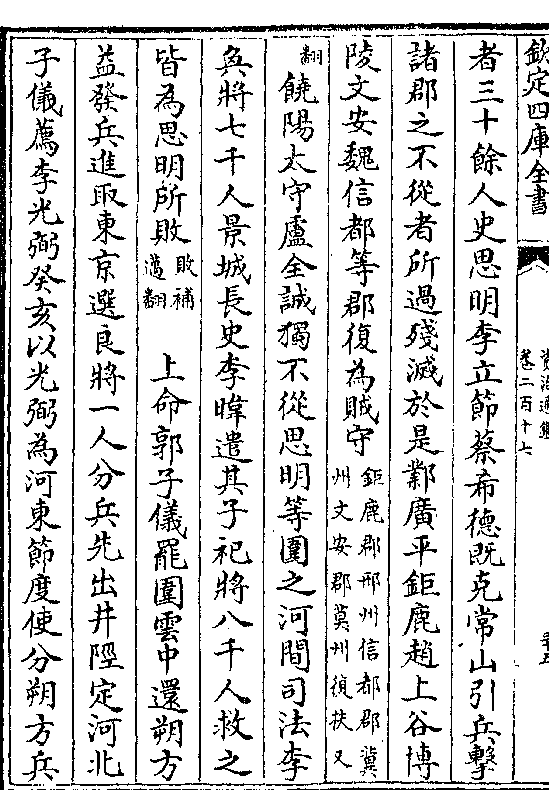 欽定四庫全書
資治通鑑
卷二百十七
者三十餘人史思明李立節蔡希德既克常山引兵擊
諸郡之不從者所過殘滅於是鄴廣平鉅鹿趙上谷博
陵文安魏信都等郡復為賊守鉅鹿郡邢州信都郡冀
州文安郡莫州復扶又
翻饒陽太守盧全誠獨不從思明等圍之河間司法李
奐將七千人景城長史李暐遣其子祀將八千人救之
皆為思明所敗敗補
邁翻上命郭子儀罷圍雲中還朔方
益發兵進取東京選良將一人分兵先出井陘定河北
子儀薦李光弼癸亥以光弼為河東節度使分朔方兵